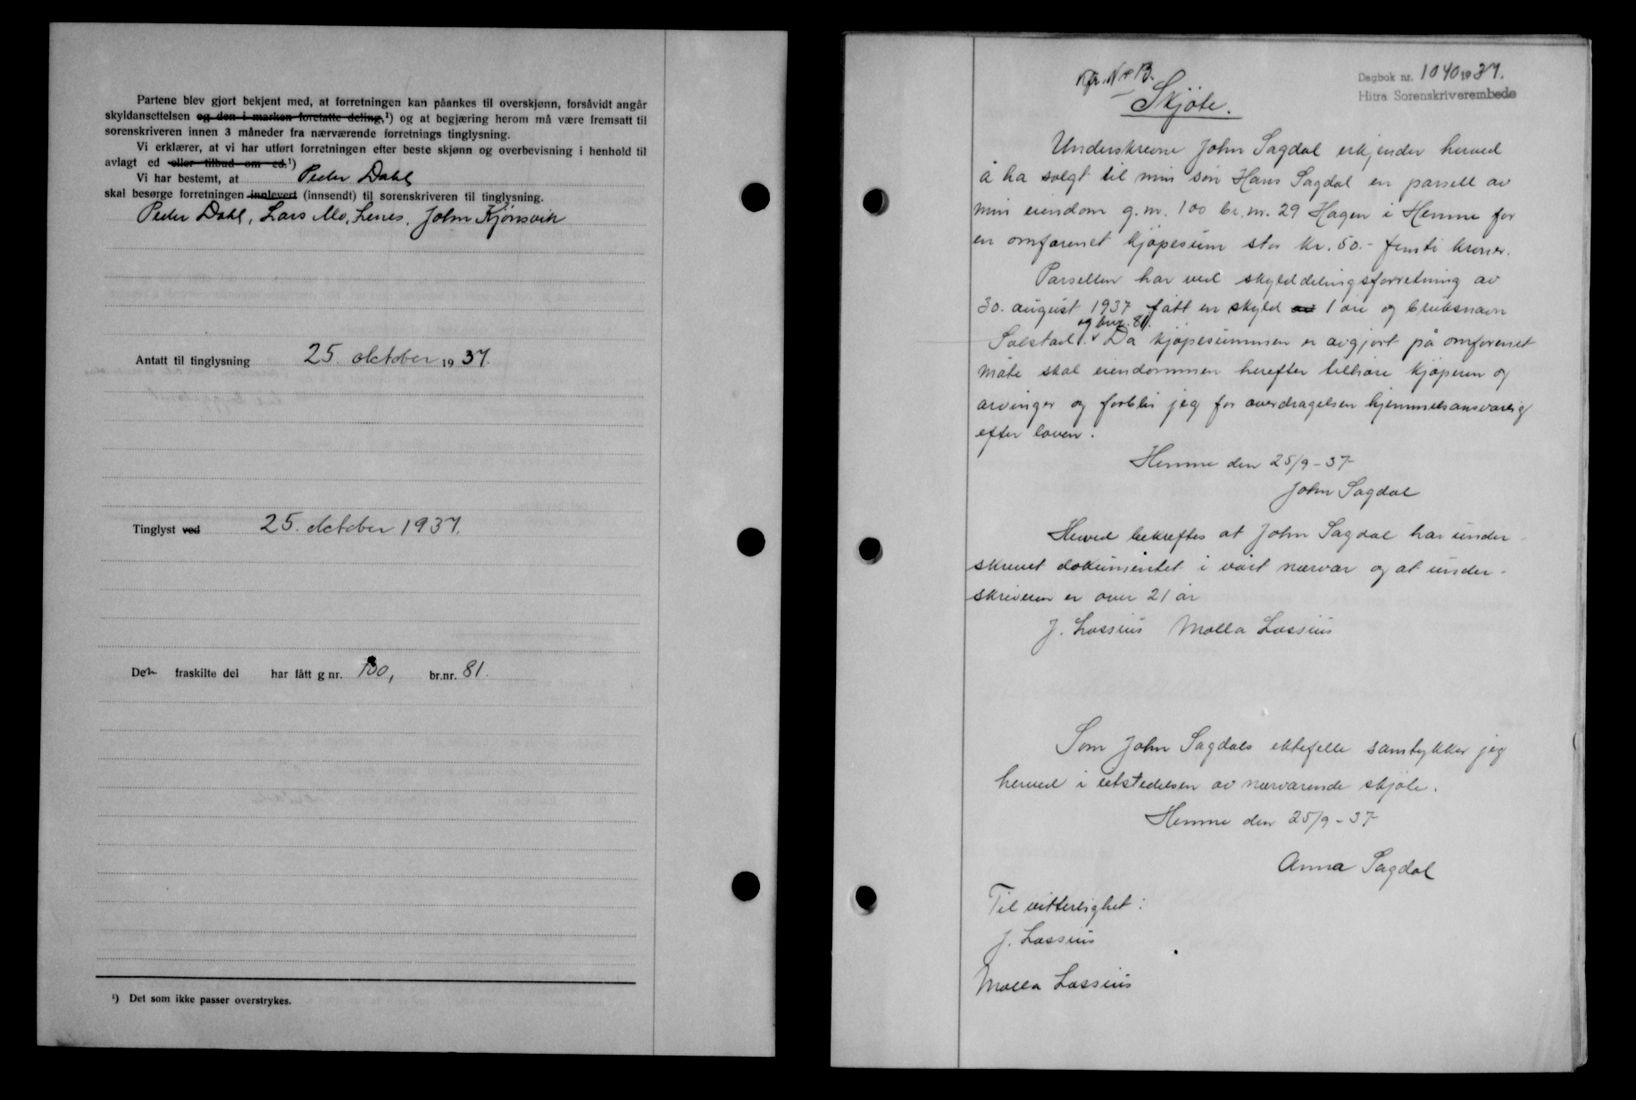 Partene blev gjort bekjent med, at forretningen kan påankes til overskjønn, forsåvidt angår
skyldansettelsen og den i marken foretatte deling,¹) og at begjæring herom må være fremsatt til
sorenskriveren innen 3 måneder fra nærværende forretnings tinglysning.
Vi erklærer, at vi har utført forretningen efter beste skjønn og overbevisning i henhold til
avlagt ed eller tilbud om ed.¹)
Vi har bestemt, at Peder Dahl
skal besørge forretningen innlevert (innsendt) til sorenskriveren til tinglysning.
Peder Dahl, Lars Mo, Lenes, John Kjønsvik
Antatt til tinglysning 25. oktober 1937.
Tinglyst ved 25. oktober 1937.
Den fraskilte del har fått g nr. 100, br.nr. 81.
¹) Det som ikke passer overstrykes.
Dagbok nr. 1040 1937.
Hitra Sorenskriverembede
Skjøte.
Underskrevne John Sagdal erkjender herved
å ha solgt til min søn Hans Sagdal en parsell av
min eiendom g.nr. 100 br.nr. 29 Hagen i Hemne for
en omforenet kjøpesum stor kr. 50.- femti kroner.
Parsellen har ved skylddelingsforretning av
30. august 1937 fått en skyld av 1 øre og bruksnavn
Solstad. og bnr. 81. Da kjøpesummen er avgjort på omforenet
måte skal eiendommen herefter tilhøre kjøperen og
arvinger og forblir jeg for overdragelsen hjemmelsansvarlig
efter loven.
Hemne den 25/9-37
John Sagdal
Herved bekreftes at John Sagdal har under-
skrevet dokumentet i vårt nærvær og at under-
skriveren er over 21 år
J. Lossius Molla Lossius
Som John Sagdals ektefelle samtykker jeg
herved i utstedelsen av nærværende skjøte.
Hemne den 25/9-37
Anna Sagdal
Til vitterlighet:
J. Lossius
Molla Lossius